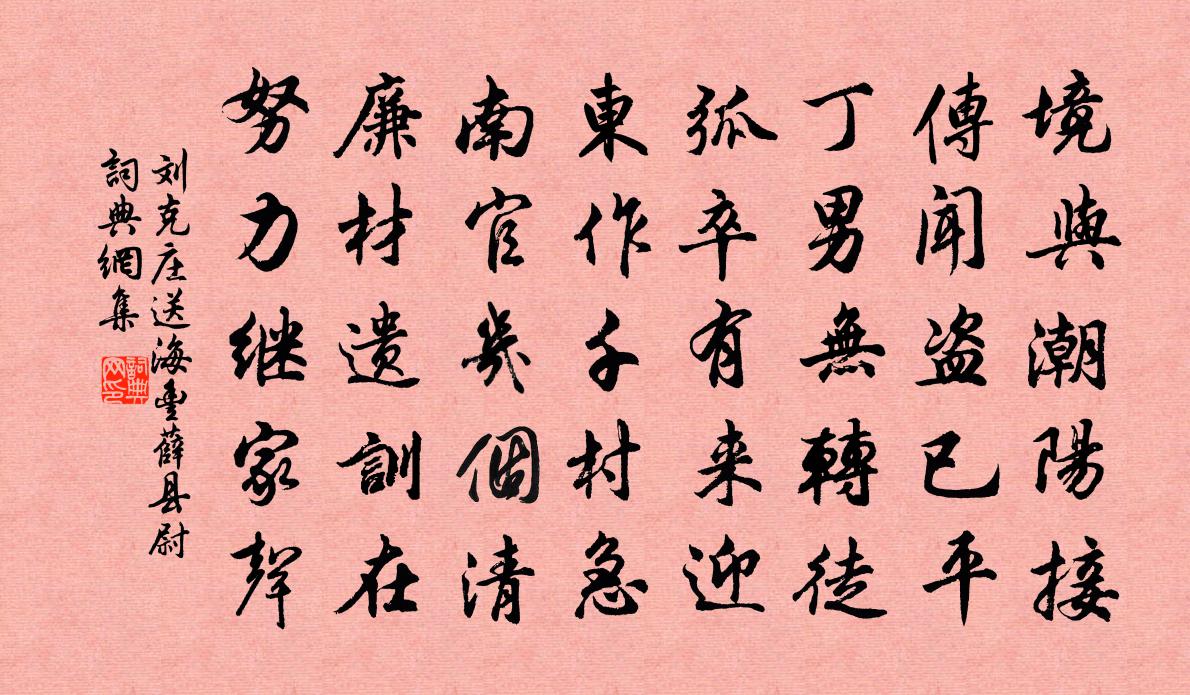 境與潮陽接
傳聞盗已平
丁男無轉徒
孤卒有来迎
東作千村急
南官幾個清
廉材遗訓在
努力继家聲
刘克庄送海豐薛县尉
詞典網集
詞典网印